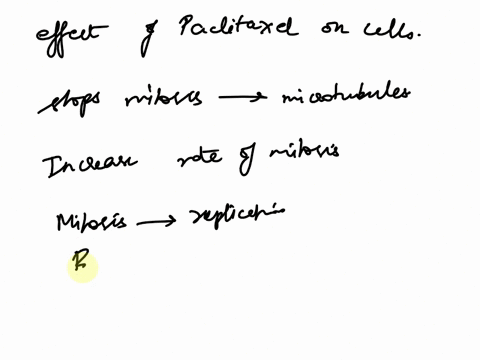 effect of Paclitaxel on cells.
stops mitosis → microtubules
Increase rate of mitosis
Mitosis → replication
R